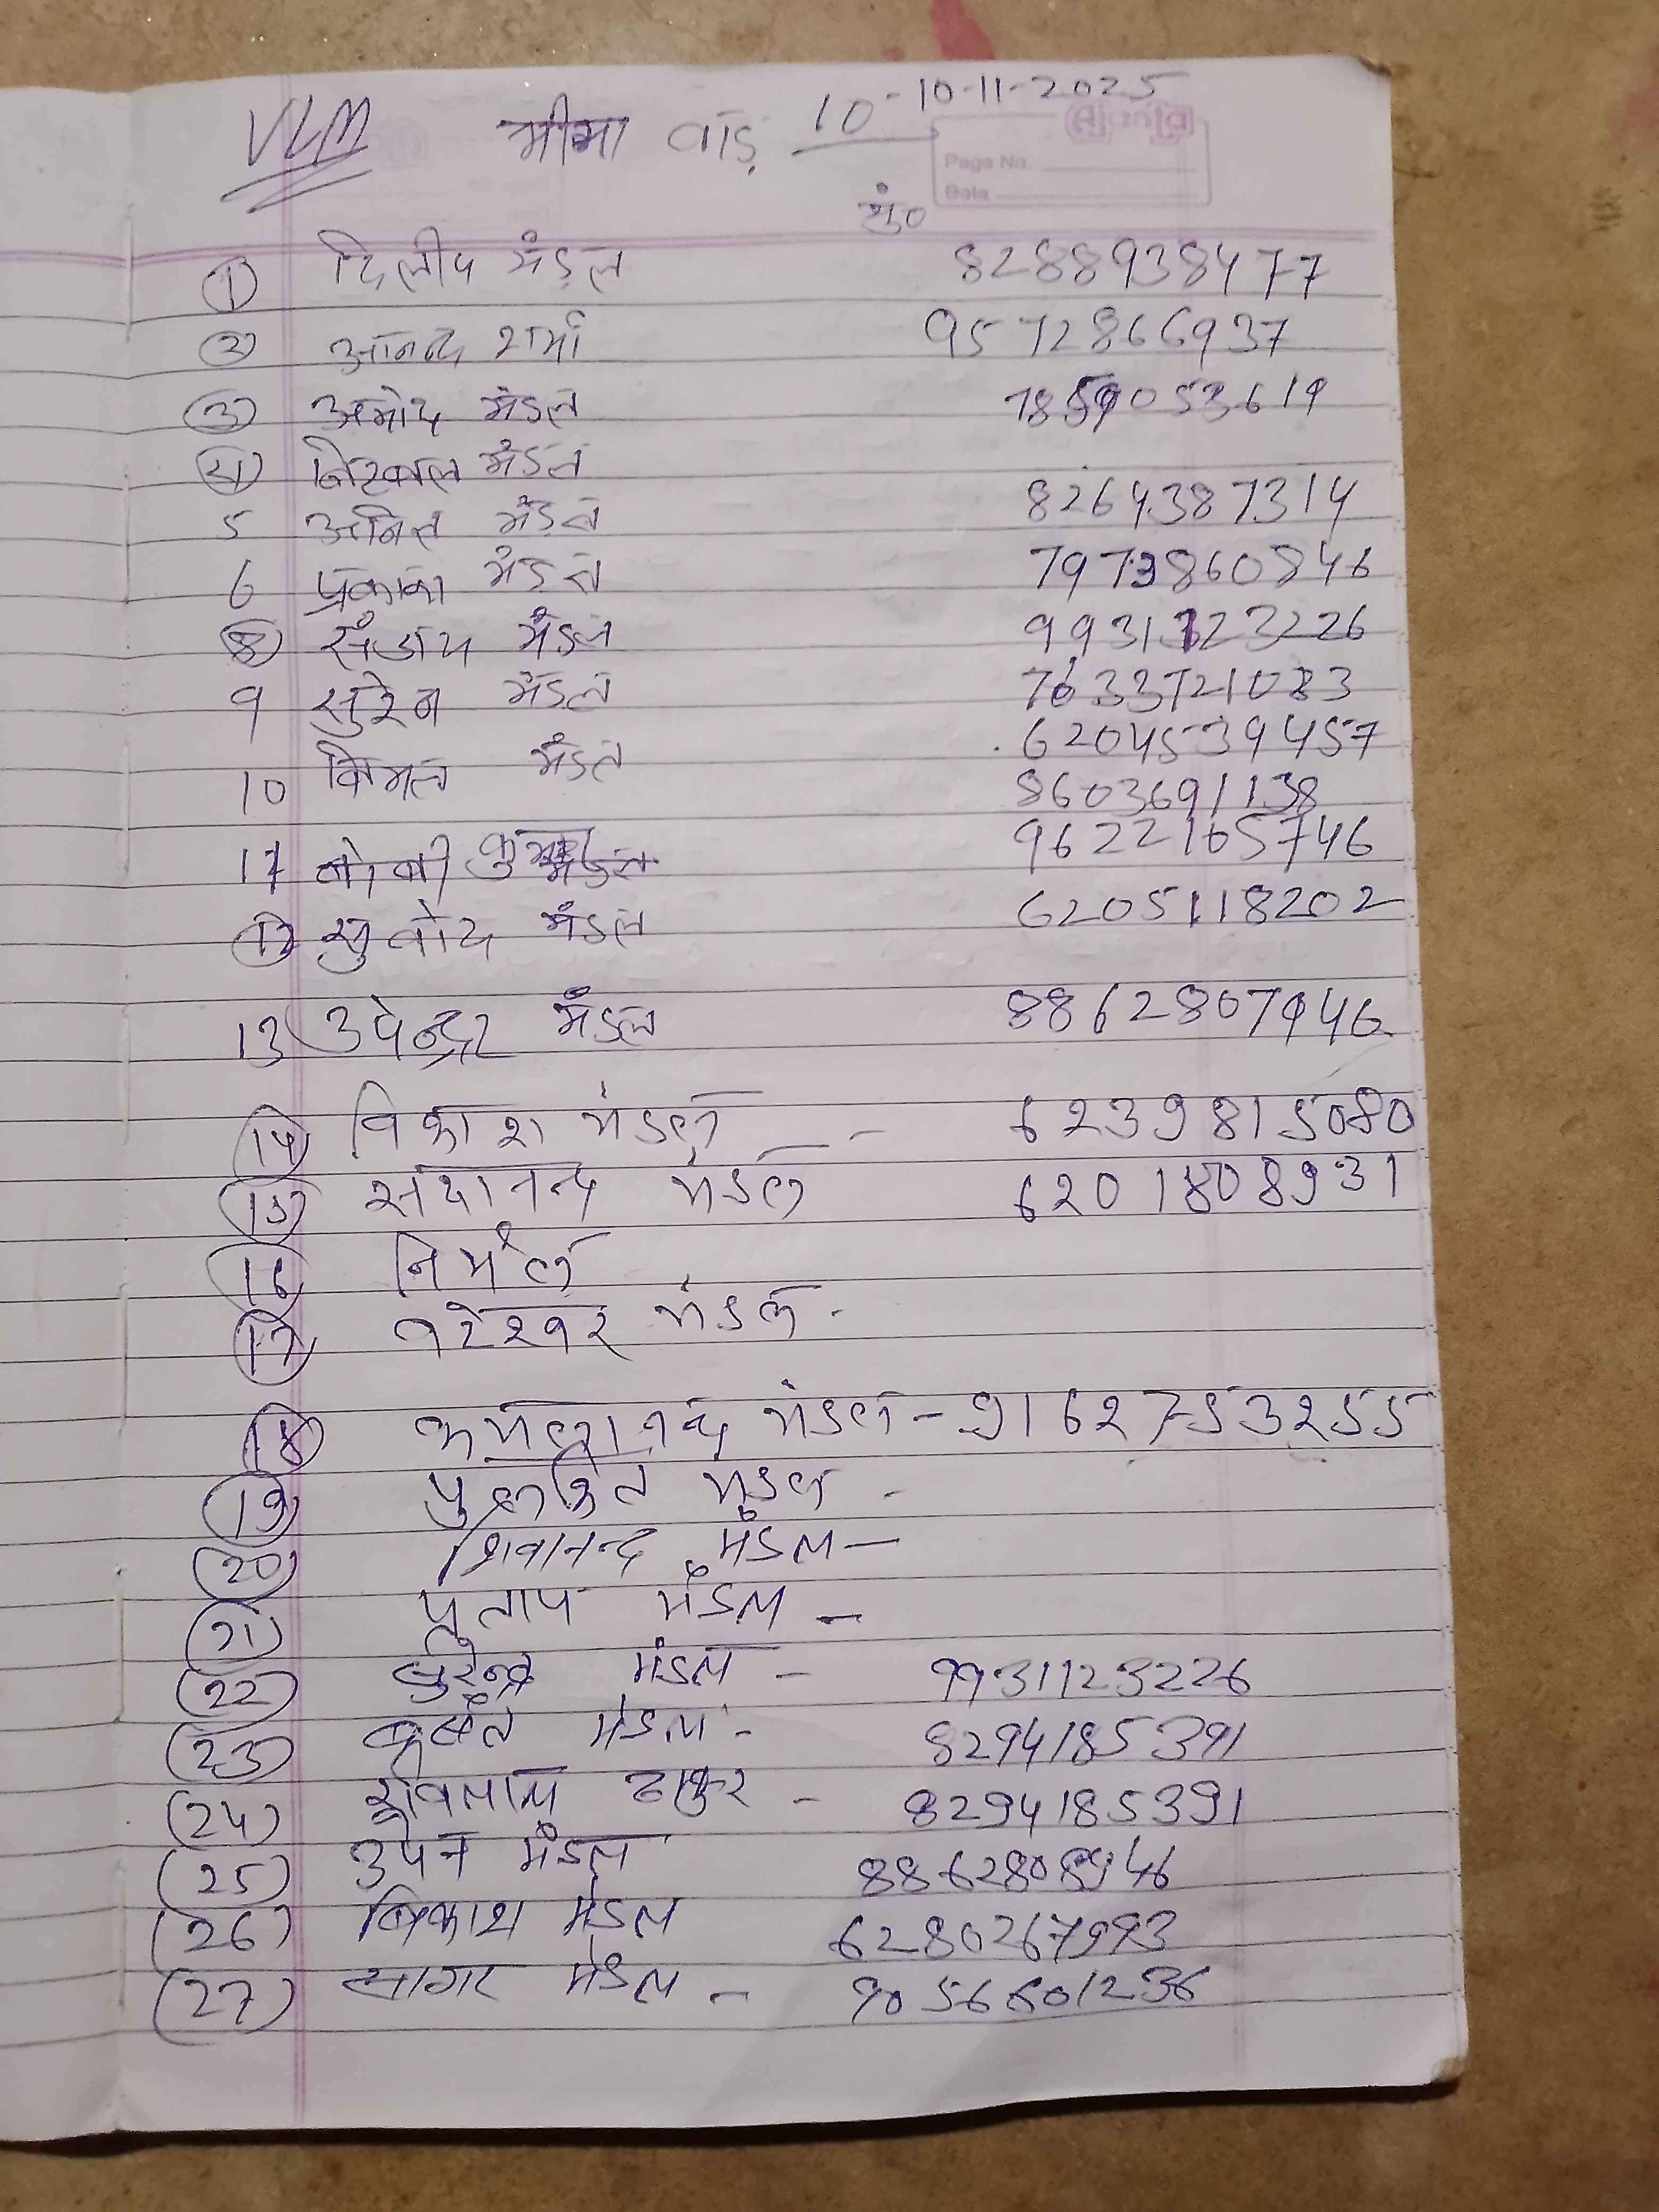 VLM भीमा वार्ड 10 - 10-11-2025
Page No.
Date
सं०
① दिलीप मंडल 8288938477
② आनन्द शर्मा 9572866937
③ अमोद मंडल 7859053619
④ मंडल
5 अनिल मंडल 8264387314
6 प्रकाश मंडल 7973860846
⑧ संजय मंडल 9931123226
9 सुरेन मंडल 7633721083
10 बिमल मंडल 62045394457
8603691138
11 बोबी कुमार 9622165746
⑫ सुबोद मंडल 6205118202
13 उपेन्द्रर मंडल 8862807946
⑭ विकाश मंडल - 6239815080
⑮ सदानन्द मंडल 6201808931
⑯ निर्मल
⑰ वटेश्वर मंडल -
⑱ कमलानन्द मंडल - 9162753255
⑲ मंडल -
(20) शिवानन्द मंडल -
(21) प्रताप मंडल -
(22) सुरेन्द्र मंडल - 9931123226
(23) मंडल - 8294185391
(24) ठाकुर - 8294185391
(25) उपेन मंडल 8862808946
(26) बिकाश मंडल 6280267993
(27) सागर मंडल - 9056601236